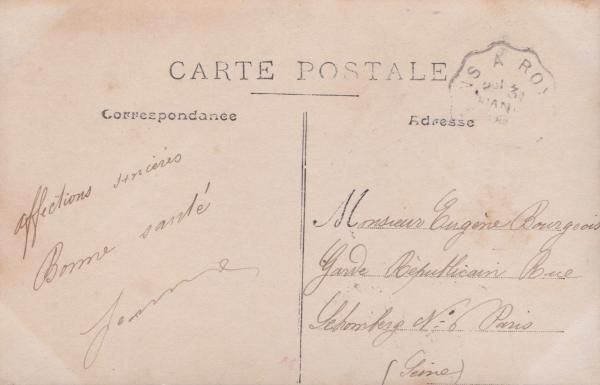 CARTE POSTALE
Correspondance
Adresse
affections sincères
Bonne santé
Jeanne
Monsieur Eugène Bourgeois
Garde Républicain Rue
Schomberg N° 6 Paris
(Seine)